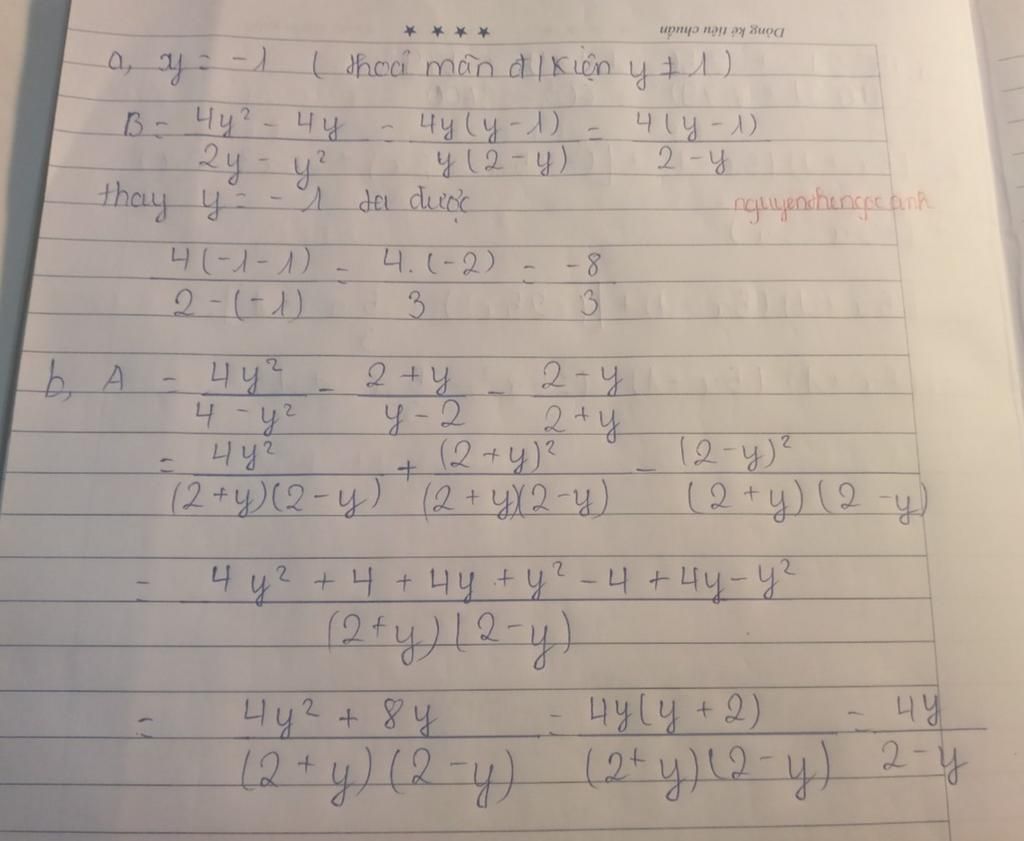 ★ ★ ★ ★ Dòng kẻ tiêu chuẩn
a, y = -1 ( thoả mãn đ/kiện y ≠ 1 )
B = \frac{4y² - 4y}{2y - y²} = \frac{4y(y-1)}{y(2-y)} = \frac{4(y-1)}{2-y}
thay y = -1 ta được nguyenthengocanh
\frac{4(-1-1)}{2-(-1)} = \frac{4.(-2)}{3} = \frac{-8}{3}
b, A = \frac{4y²}{4 - y²} - \frac{2+y}{y-2} - \frac{2-y}{2+y}
= \frac{4y²}{(2+y)(2-y)} + \frac{(2+y)²}{(2+y)(2-y)} - \frac{(2-y)²}{(2+y)(2-y)}
= \frac{4y² + 4 + 4y + y² - 4 + 4y - y²}{(2+y)(2-y)}
= \frac{4y² + 8y}{(2+y)(2-y)} = \frac{4y(y+2)}{(2+y)(2-y)} = \frac{4y}{2-y}